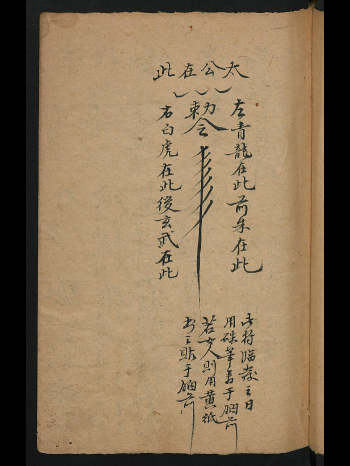 太公在此
左青龍在此前朱在此
勅令
右白虎在此後玄武在此
此符臨產之日
用硃筆書于胸前
若女人則用黃紙
書之貼于胸前